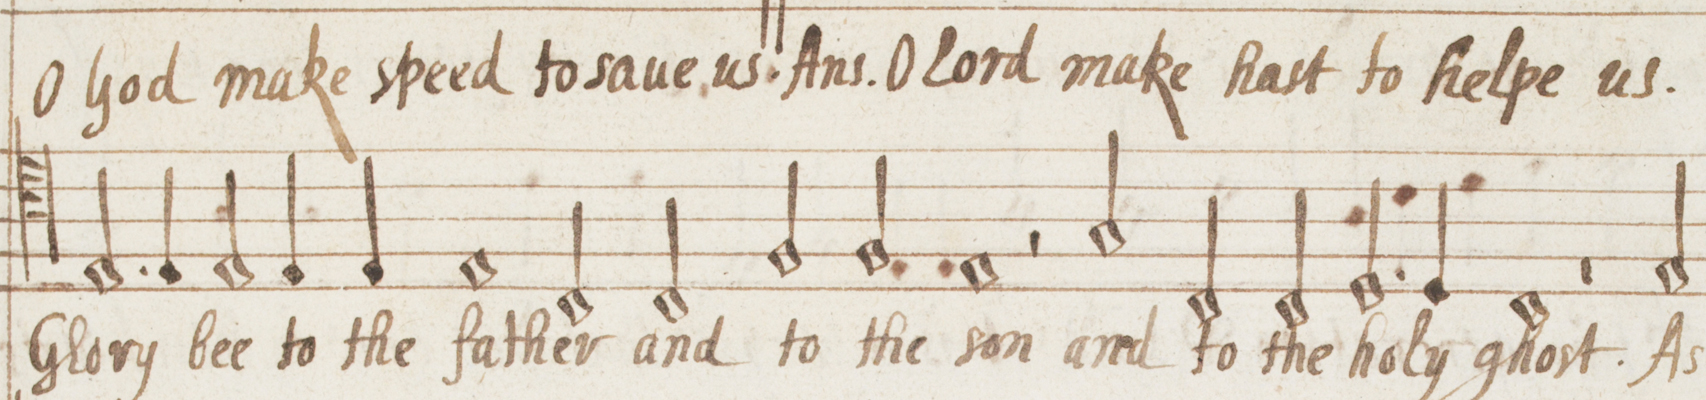 O God make speed to saue us. Ans. O Lord make hast to helpe us.
Glory bee to the father and to the son and to the holy ghost. As